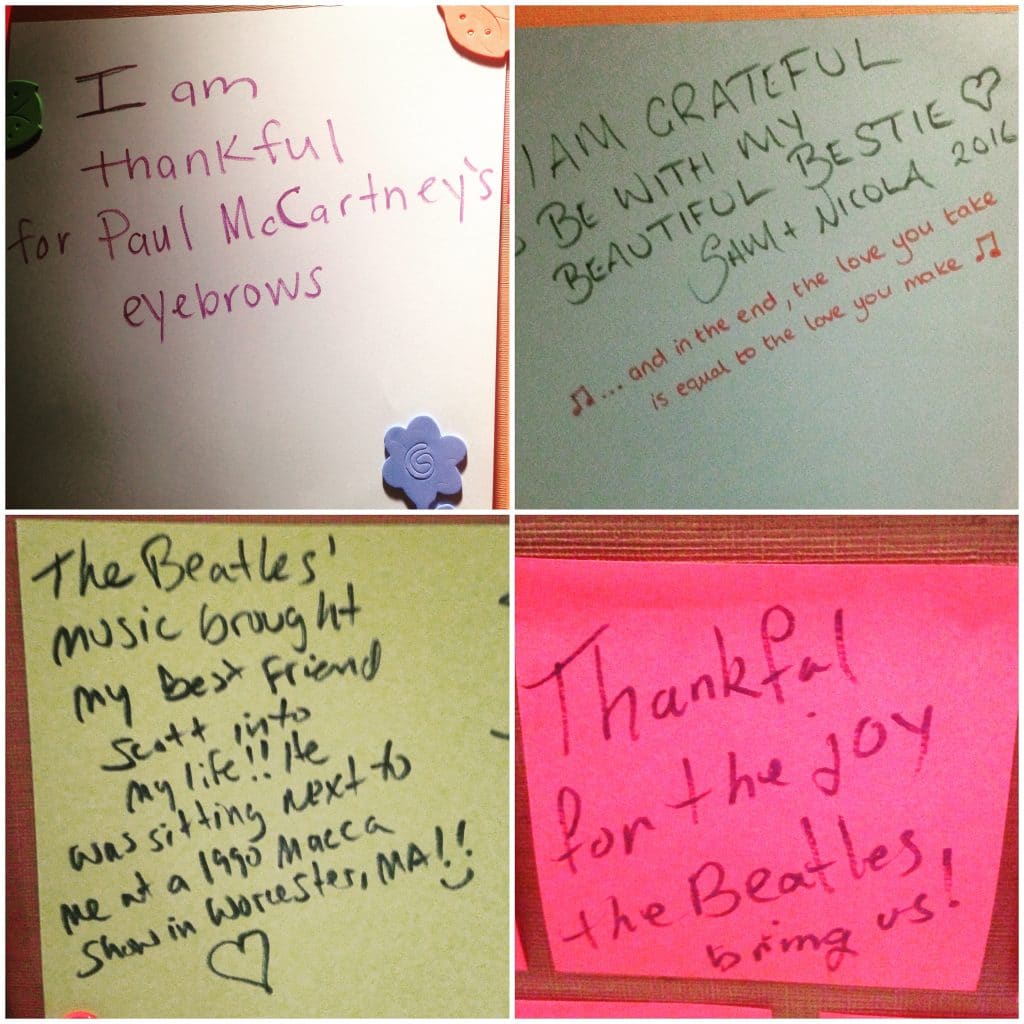 I am
thankful
for Paul McCartney's
eyebrows
I AM GRATEFUL
BE WITH MY
BEAUTIFUL BESTIE ♡
SAM + NICOLA 2016
♫... and in the end, the love you take
is equal to the love you make ♫
The Beatles'
music brought
my best friend
Scott into
my life!! He
was sitting next to
me at a 1990 Macca
show in Worcester, MA!!
Thankful
for the joy
the Beatles
bring us!